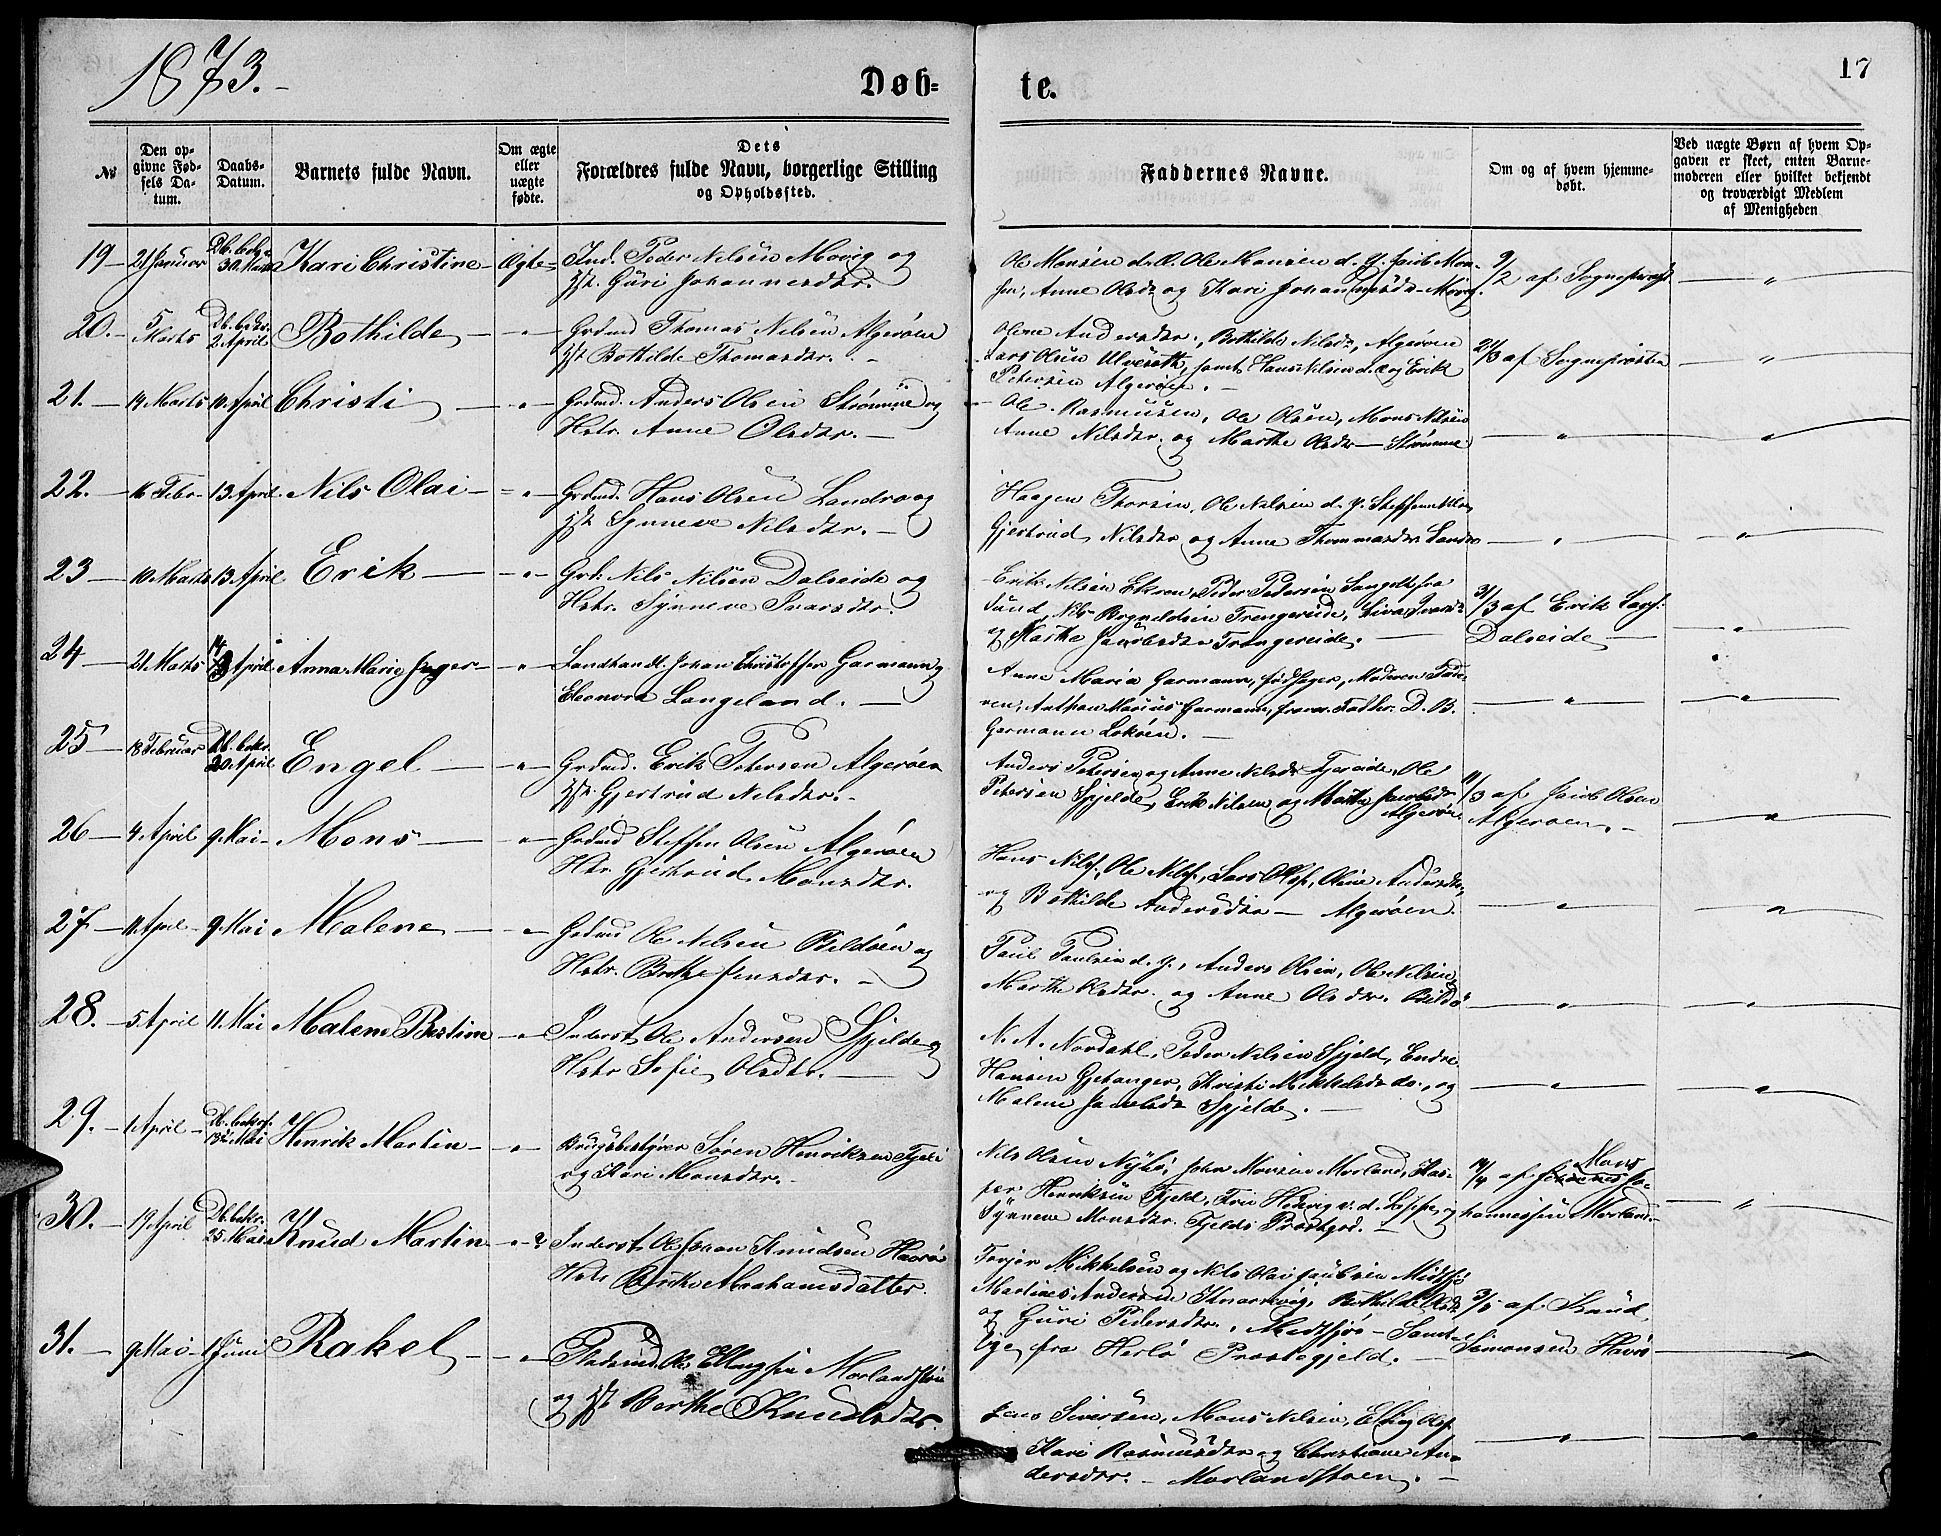 1873.
Døb-
te.
17
No
Den op-
givne Fød-
sels Da-
tum.
Daabs-
Datum.
Barnets fulde Navn.
Om ægte
eller
uægte
fødte.
Dets
Forældres fulde Navn, borgerlige Stilling
og Opholdssted.
Faddernes Navne.
Om og af hvem hjemme-
døbt.
Ved uægte Børn af hvem Op-
gaven er skeet, enten Barne-
moderen eller hvilket bekjendt
og troværdigt Medlem
af Menigheden
19 21 Januar Db. bekr. 30. Marts Kari Christine Ægte Ind. Peder Nilsen Movig og
Guri Johannesdtr.
Ole Monsen d. Æ. Ole Monsen d. y. Jacob Mon-
sen, Anne Olsdr og Kari Johannesdr Movig.
9/2 af Sognepræst
20. 5 Marts Db. bekr. 2 April Bothilde Grdmd Thomas Nilsen Algerøen
Bothilde Thomasdtr.
Oline Andersdtr, Bothilde Nilsdr, Algerøen
Lars Olsen Ulveseth, samt Hans Nilsen d. æ og Erik
Petersen Algerøen.
21/3 af Sognepræsten
21. 14 Marts 11 April Christi Grdmd. Anders Olsen Strømme og
Hstr. Anne Olsdtr.
Ole Rasmusen, Ole Olsen, Mons Nilsen
Anne Nilsdtr. og Marthe Olsdr Strømme
22. 16 Febr 13 April Nils Olai Grdmd. Hans Olsen Landro og
Synneve Nilsdtr.
Haagen Thorsen, Ole Nilsen d. y. Steffen Nils
Gjertrud Nilsdtr og Anne Thommasdr Landro
23 10 Marts 13 April Erik Grd. Nils Nilsen Dalseide og
Hstr. Synneve Ivarsdtr.
Erik Nilsen Ekren, Peder Pedersen Langeltefra
Sund, Nils Rognaldsen Trengereide, Siva Iversdr
og Marthe Jacobsdr Trengereide.
31/3 af Erik Lars.
Dalseide
24 21 Marts 14 April Anna Marie Jæger Landhandl. Johan Christoffer Garmann og
Eleonora Langeland.
Anne Maria Garmann, født Jæger, Moderen Fade-
ren, Anthon Marius Garmann, D. B.
Garmann Løkøen.
25 18 Februar Db. bekr. 20. April Engel Grdmd. Erik Petersen Algerøen
Gjertrud Nilsdtr.
Anders Petersen og Anne Nilsdr Tjereide, Ole
Petersen Spjelde, Erik Nilsen og Marthe Jacobsdr
Algerøen.
11/3 af Jacob Olsen
Algerøen.
26 4 April 9 Mai Mons Grdmd Steffen Olsen Algerøen
Hstr Gjertrud Monsdtr.
Hans Nilsf, Ole Nilsf, Lars Olsf, Oline Andersdtr,
og Bothilde Andersdtr Algerøen.
27 11 April 9 Mai Malene Grdmd Ole Nilsen Bildøen og
Hstr. Berthe Jensdtr.
Paul Paulsen d. y., Anders Olsen, Ole Nilsen
Marthe Olsdtr. og Anne Olsdtr. Bildø
28. 5 April 11 Mai Malene Bertine Inderst Ole Andersen Spjelde og
Hstr Sofie Olsdtr.
N. A. Nordahl, Peder Nilsen Spjeld, Endre
Hansen Gjetanger, Kristi Mikkelsdr do., og
Malene Jacobsdr Spjelde.
29. 1 April Db. bekr. 18de Mai Henrik Martin Brugsbestyrer Søren Henriksen Fjeld
og Kari Monsdtr.
Nils Olsen Nybø, John Monsen Morland, Kas-
per Henriksen Fjeld, Frue Hedevig v. d. Lippe, og
Synneve Monsdtr. Fjelds Præstgrd.
14/4 af Johannes Mons Jo-
hannessen Morland
30. 19 April Db. bekr. 25 Mai Knud Martin Inderst Ole Johan Knudsen Haarø
Hstr Berthe Abrahamsdatter.
Torger Mikkelsen og Nils Olai Jacobsen Midtsjø
Martines Andersen Skuarevig, Bothilde Olsdr
og Guri Pedersdtr. Midtsjøs - Samt-
lige fra Herlø Præstegjeld.
3/5 af Knud
Simonsen Havrø
31. 9 Mai 1 Juni Rakel Pladsmd Ole Ellingsen Morlandstøen
og Berthe Knudsdtr.
Jens Siversen, Mons Nilsen, Elling Olsf
Kari Rasmusdtr og Christiane An-
dersdtr. - Morlandstøen.